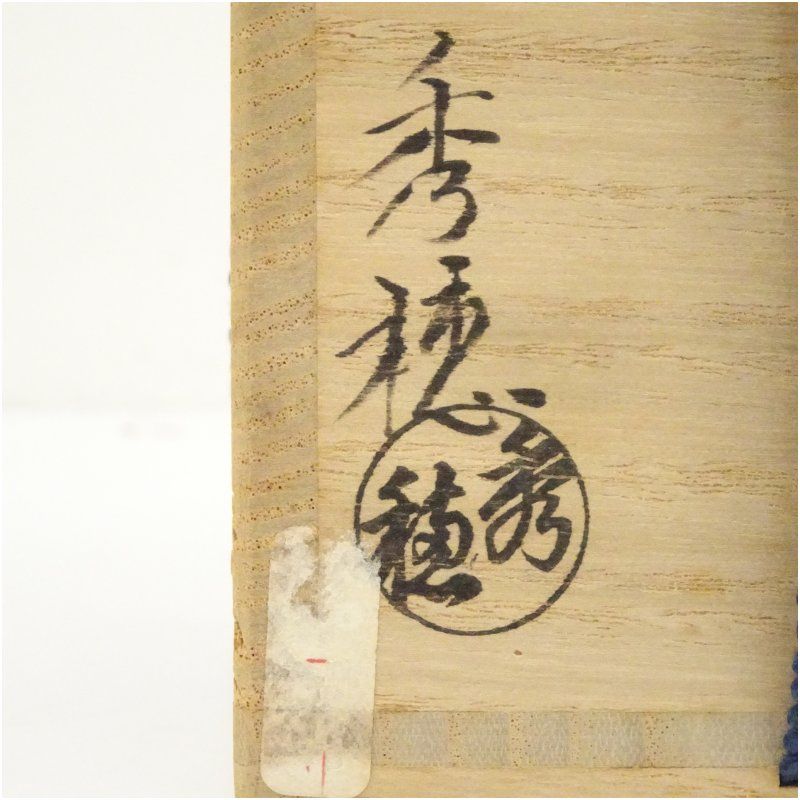 秀穂
秀穂